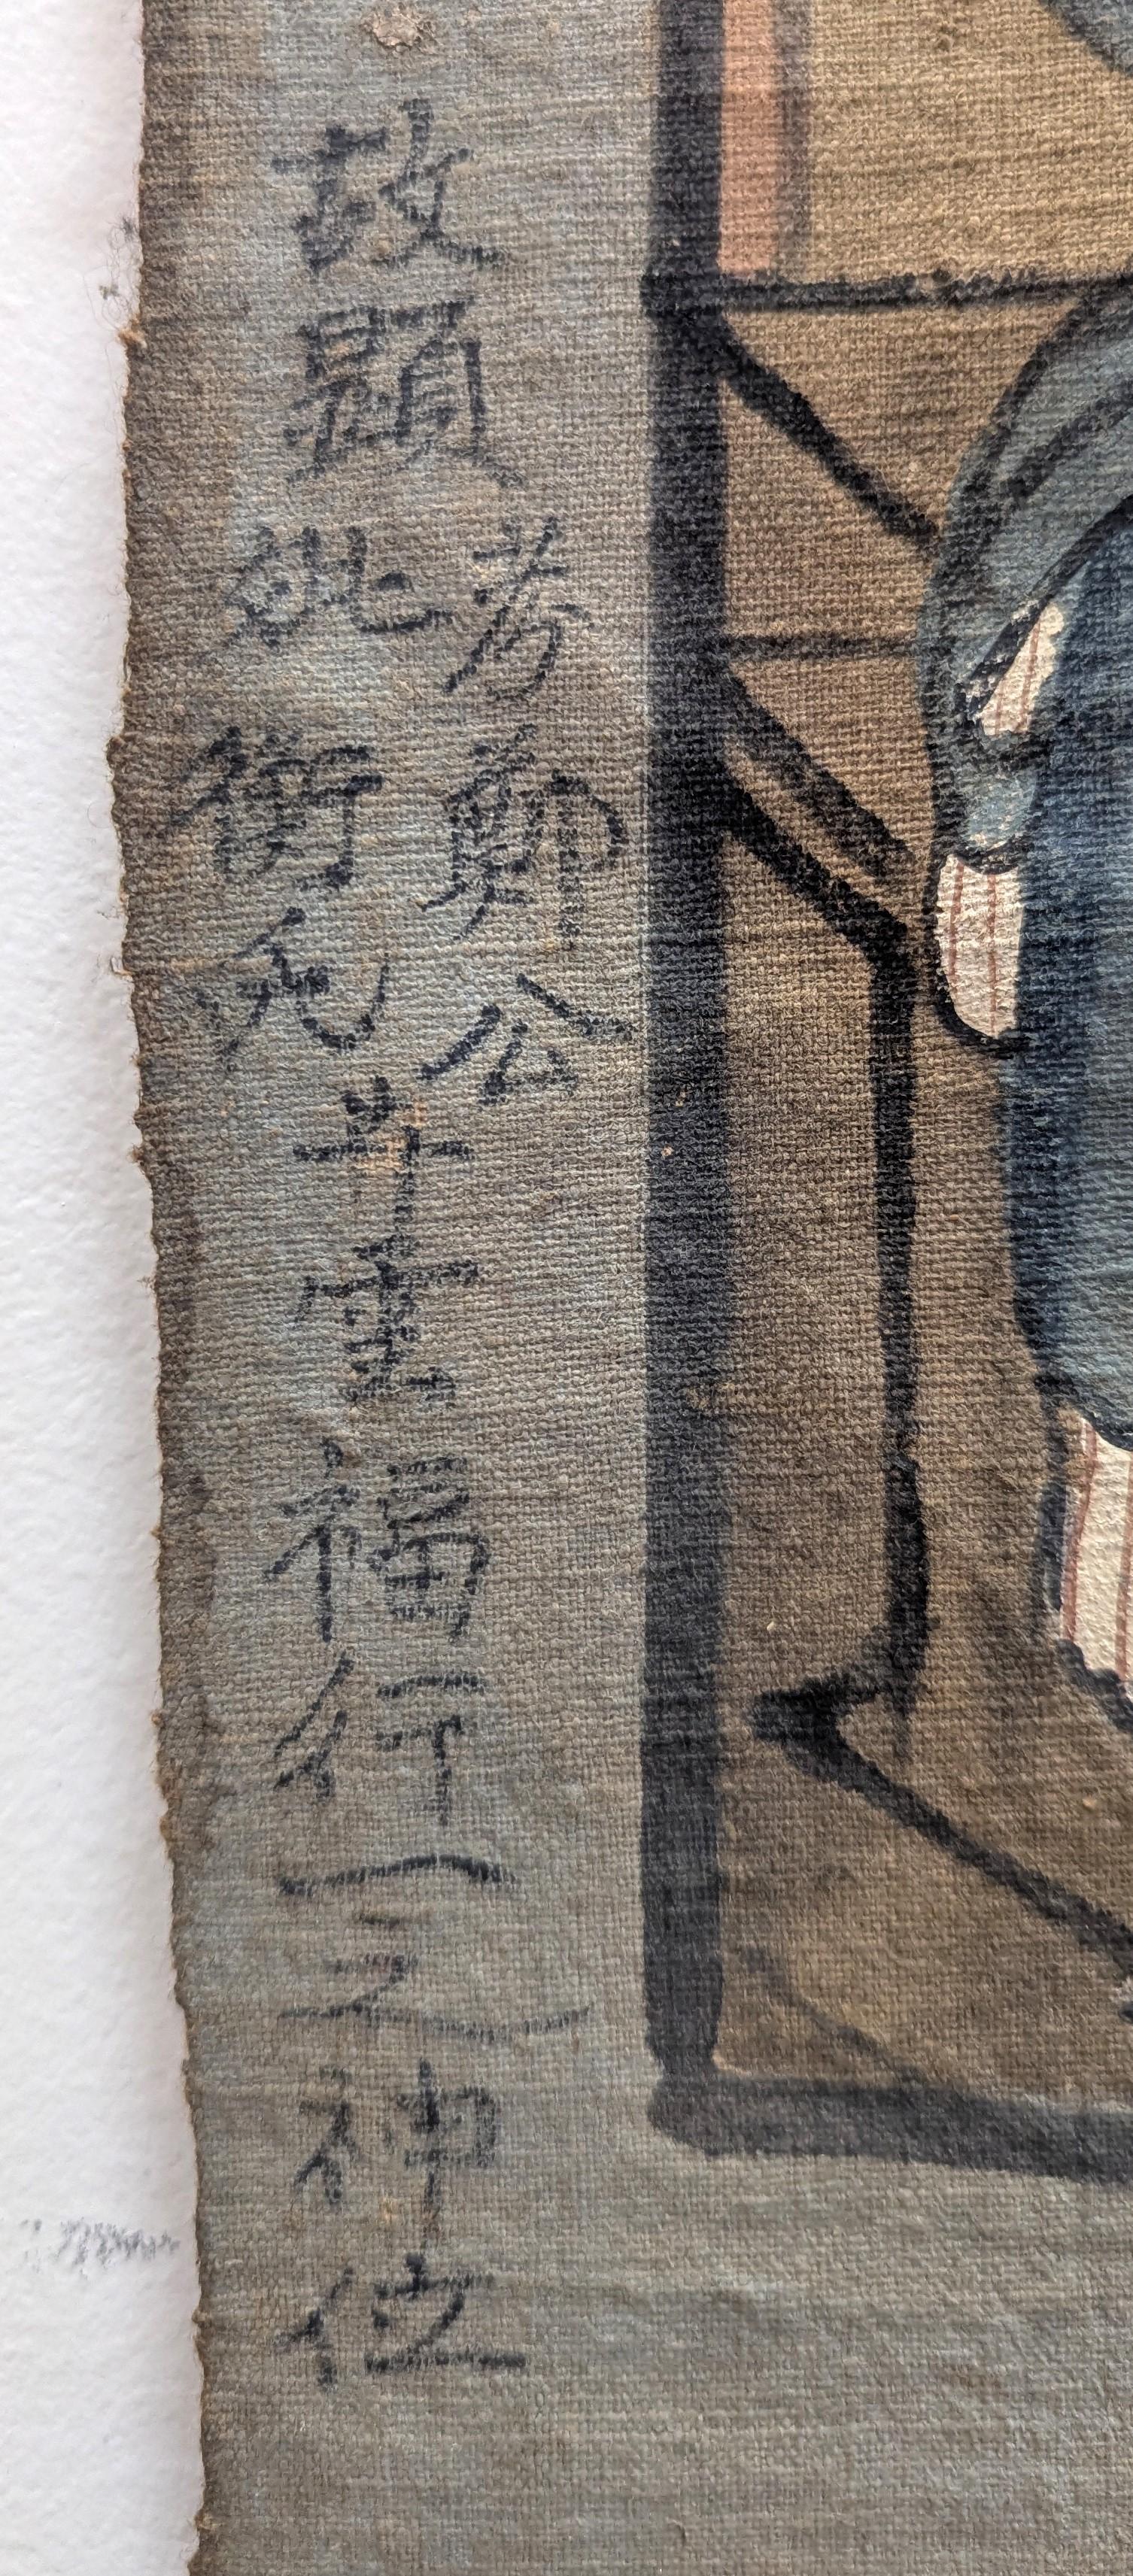 故顯
考鄭公
妣衛氏
福行一之神位